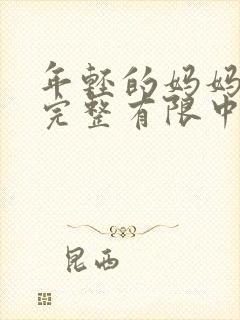 年轻的妈妈
完整有限中
昆西